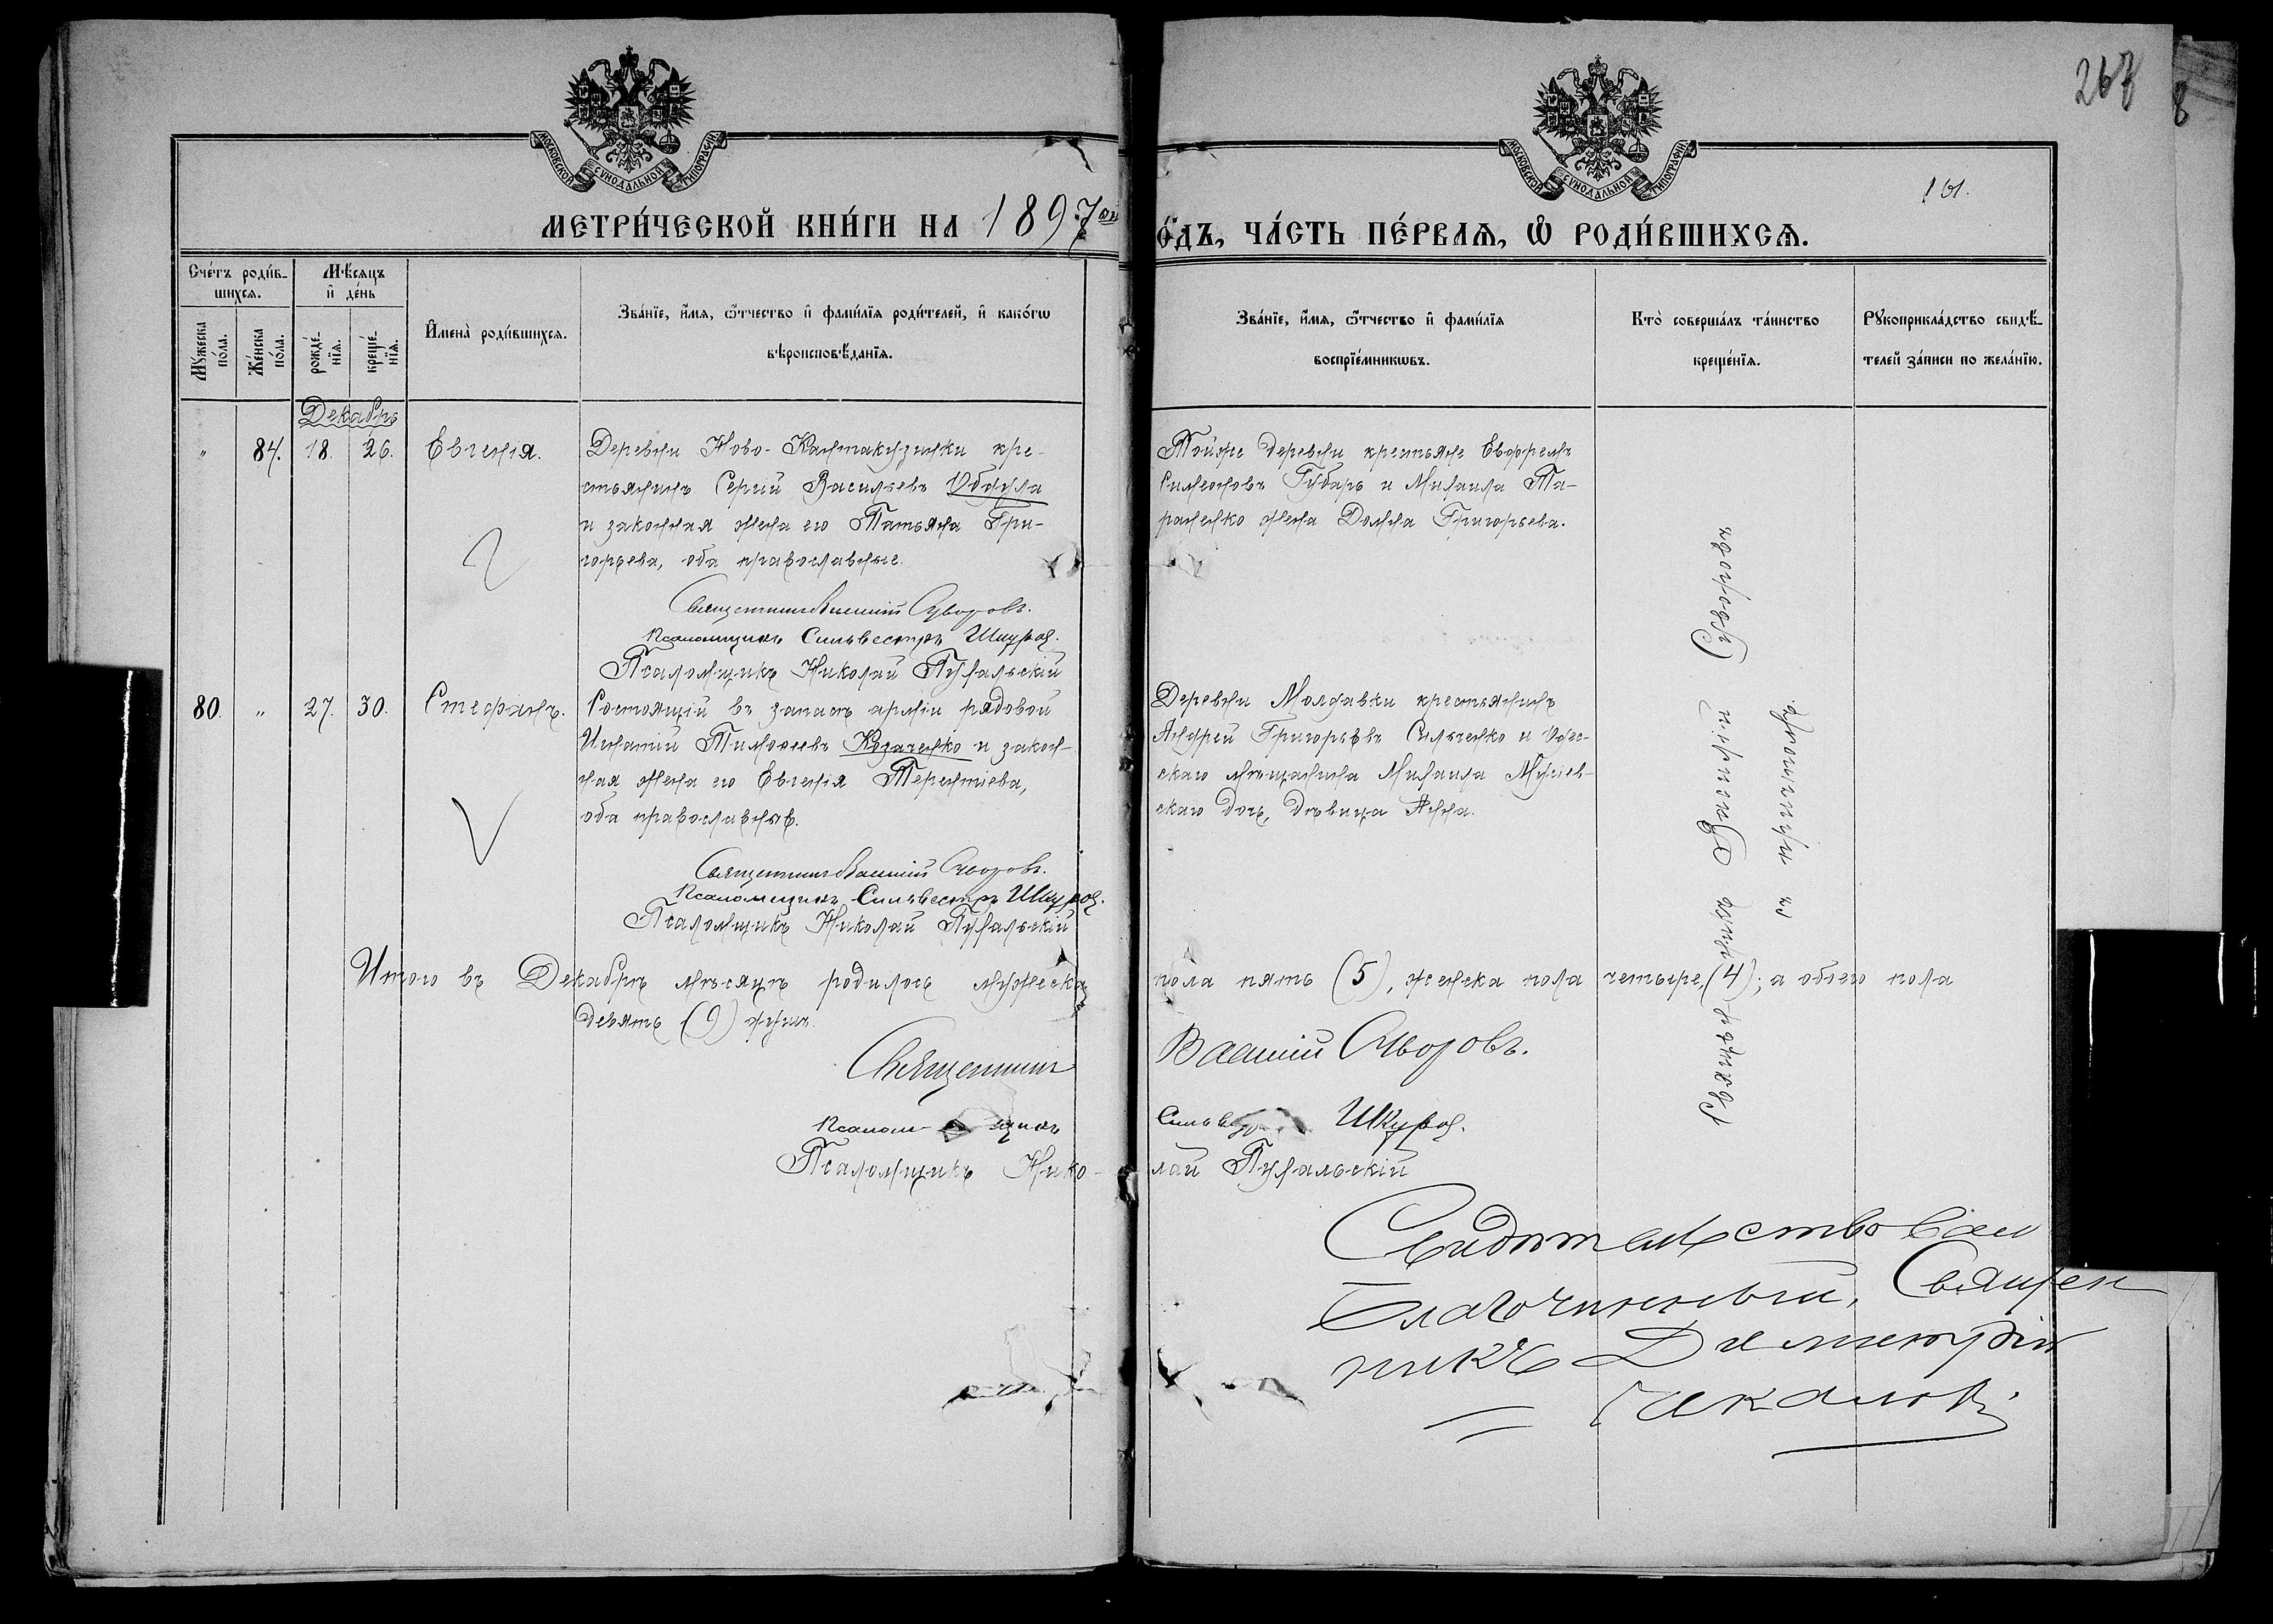 267
8
МОСКОВСКОЙ СѴНОДАЛЬНОЙ ТИПОГРАФІИ
МОСКОВСКОЙ СѴНОДАЛЬНОЙ ТИПОГРАФІИ
101.
МЕТРИ́ЧЕСКОЙ КНИ́ГИ НА 1897 ой
О́ДЪ, ЧА́СТЬ ПЕ́РВАѦ, Ѡ РОДИ́ВШИХСѦ.
Сче́тъ роди́в-
шихсѧ.
Мѣ́сѧцъ
и де́нь
Мꙋ́жеска по́ла.
Же́нска по́ла.
рожде́-нїѧ.
креще́-нїѧ.
Имена̀ роди́вшихсѧ.
Зва́нїе, и́мѧ, ѻ́тчество и фами́лїѧ роди́телей, и како́гѡ
вѣроисповѣ́данїѧ.
Зва́нїе, и́мѧ, ѻ́тчество и фами́лїѧ
воспрїе́мникѡвъ.
Кто̀ соверша́лъ та́инство
креще́нїѧ.
Рꙋкоприкла́дство свидѣ́-
телей за́писи по жела́нїю.
Декабрь
" 84. 18. 26. Евгенія.
Деревни Ново-Кантакузинки кре-
стьянинъ Сергій Васильевъ Обдула
и законная жена его Татьяна Гри-
горьева, оба православные.
Священникъ Василій Суворовъ.
Псаломщикъ Сильвестръ Шкура.
Псаломщикъ Николай Пухальскій
Тойже деревни крестьяне Евфремъ
Симеоновъ Губарь и Михаила Та-
раненко жена Домна Григорьева.
80. " 27. 30. Стефанъ.
Состоящій въ запасѣ арміи рядовой
Игнатій Тимофеевъ Козаченко и закон-
ная жена его Евгенія Терентіева,
оба православные.
Священникъ Василій Суворовъ.
Псаломщикъ Сильвестръ Шкура.
Псаломщикъ Николай Пухальскій
Деревни Молдавки крестьянинъ
Андрей Григорьевъ Сильченко и Одес-
скаго мѣщанина Михаила
скаго дочь, дѣвица Анна.
Священникъ Василій Суворовъ
съ причтомъ.
Итого въ Декабрѣ мѣсяцѣ родилось мужеска пола пять (5), женска пола четыре (4); а обоего пола
девять (9) душъ.
Священникъ Василій Суворовъ.
Псаломщикъ Шкура.
Псаломщикъ Нико-лай Пухальскій
Свидѣтельствовалъ
Благочинный, Священ
никъ Димитрій